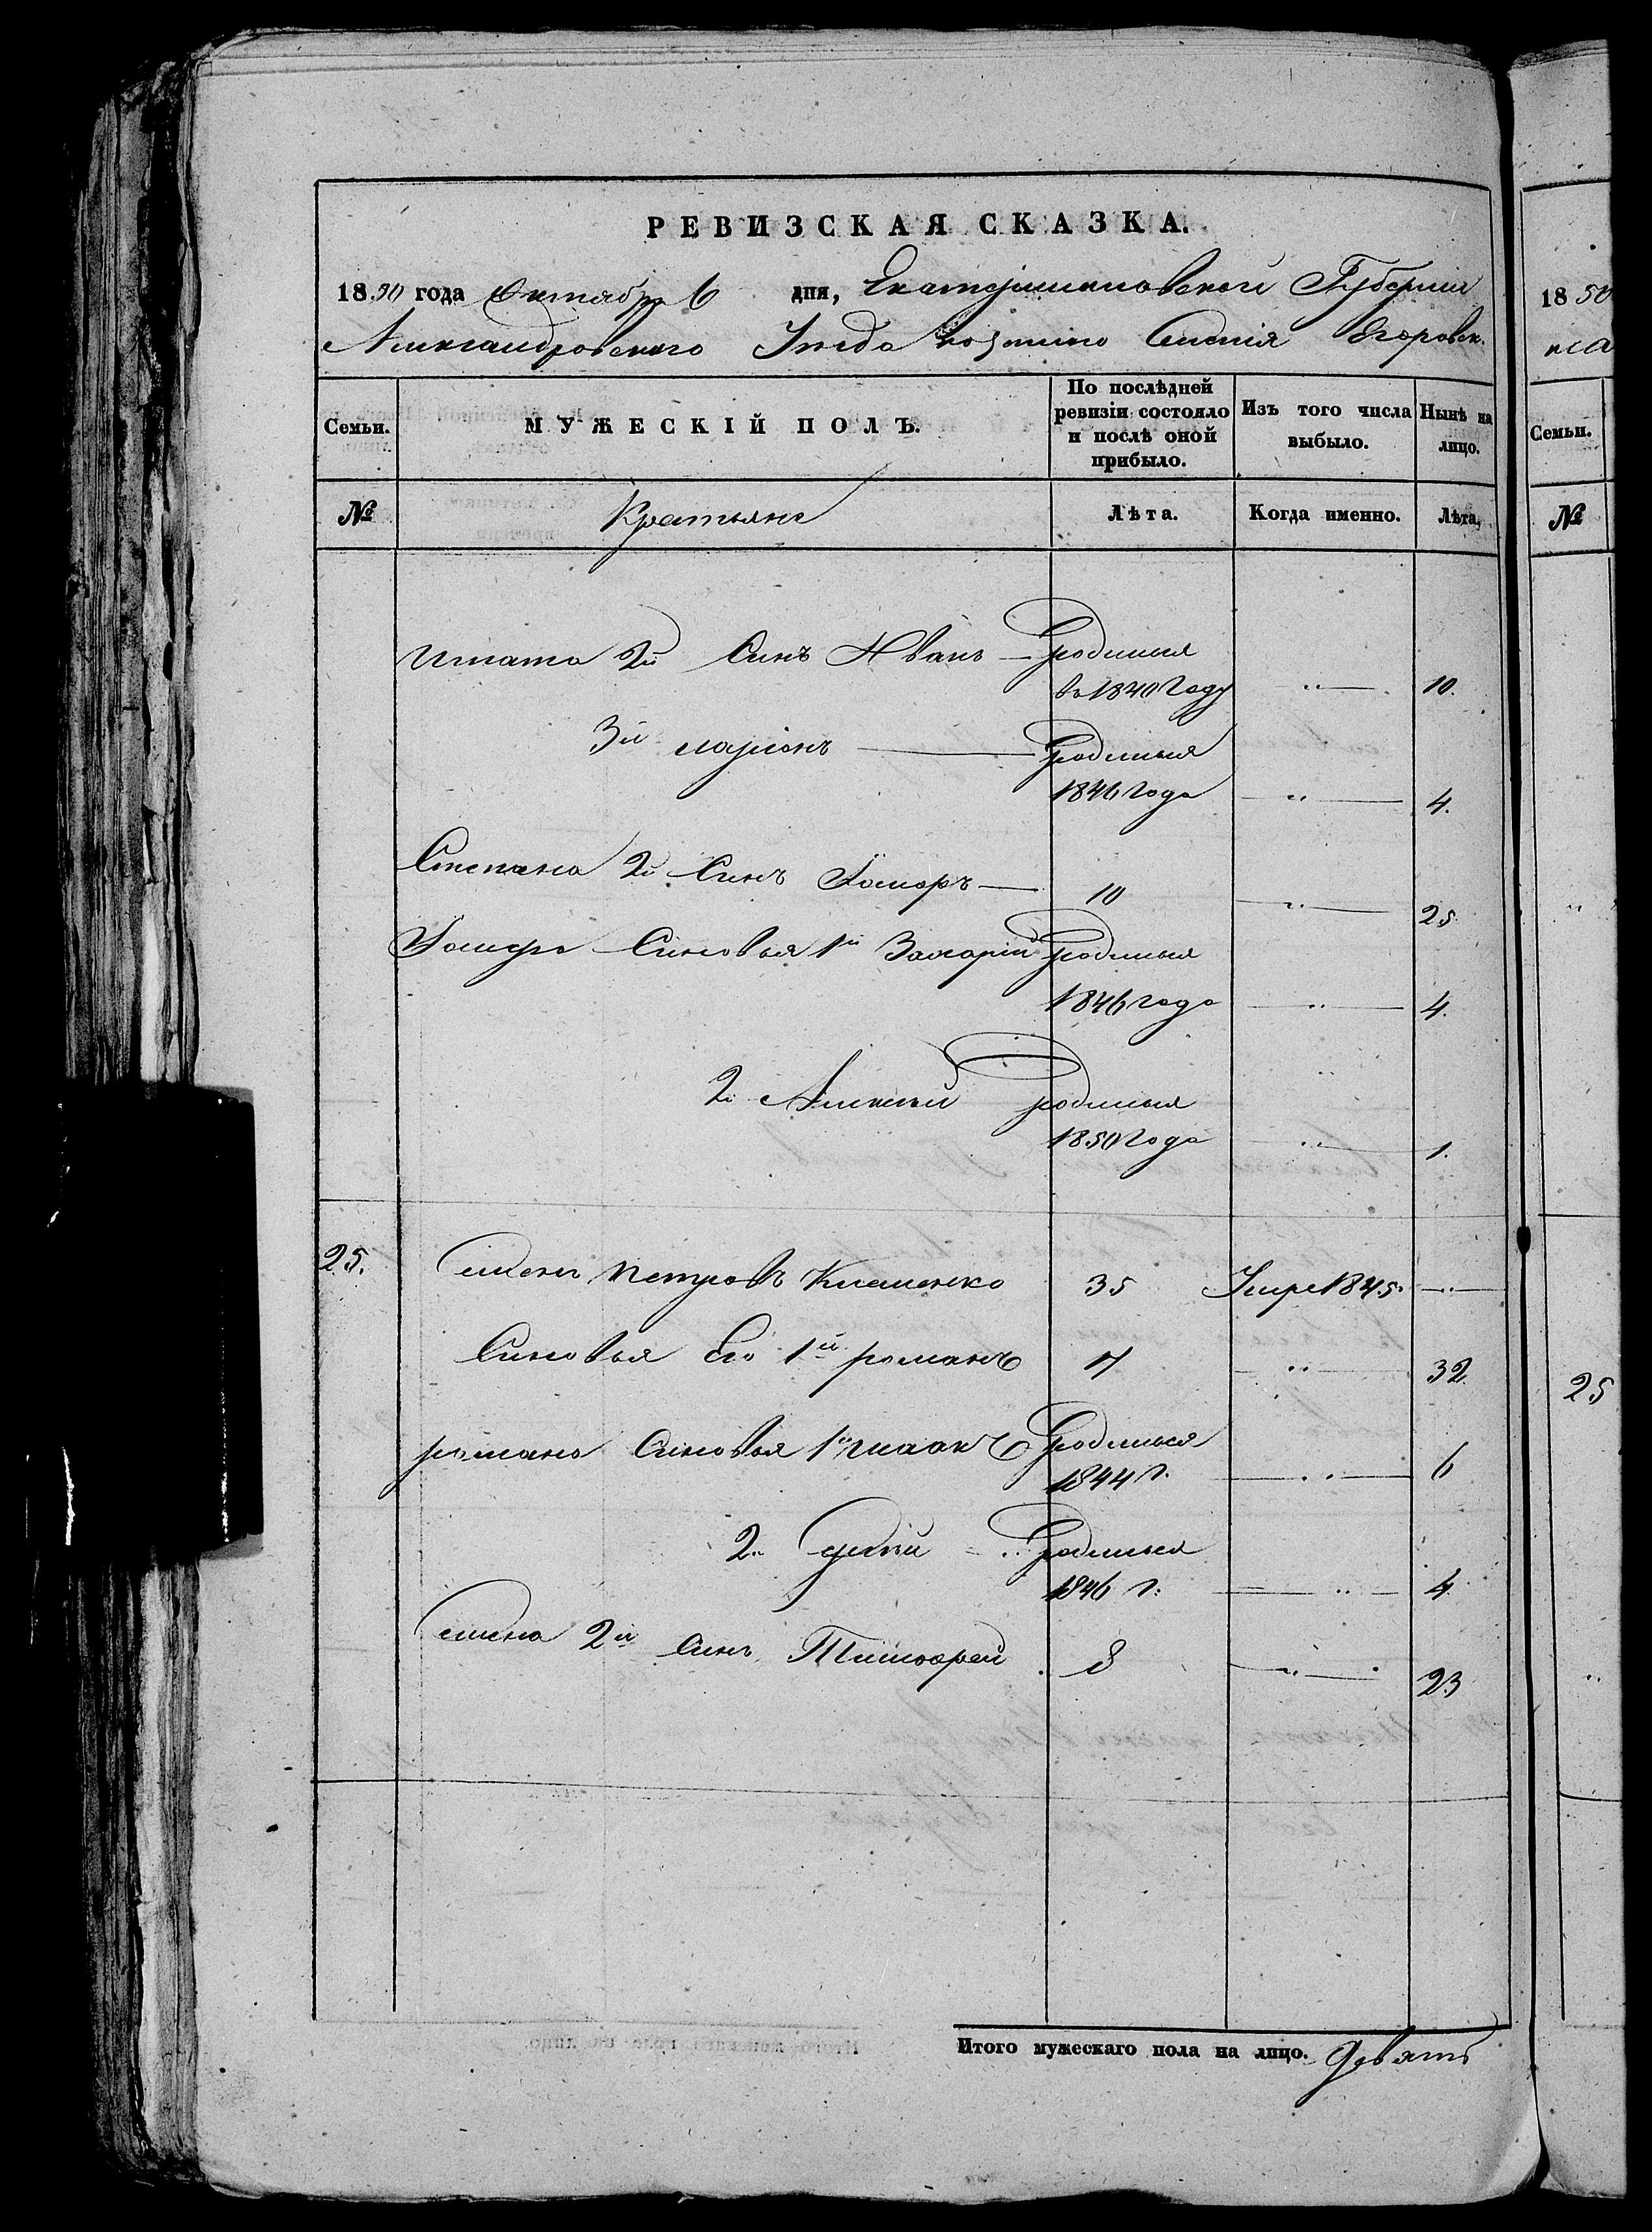 РЕВИЗСКАЯ СКАЗКА.
1850 года Октября 6 дня, Екатеринославской Губернии
Александровского Уезда Егоровк.
Семьи. МУЖЕСКІЙ ПОЛЪ. По послѣдней ревизіи состояло и послѣ оной прибыло. Изъ того числа выбыло. Нынѣ на лицо.
№ Лѣта. Когда именно. Лѣта.
2й Синъ Иванъ — родился
в 1840 году " 10.
3й ларіонъ — родился
1846 года " 4.
Степана 2й Синъ — 10 " 25.
Синовья 1й Захарій родился
1846 года " 4.
2й Алексей родился
1850 года " 1.
25. Семенъ Петровъ Клименко 35 Умре 1845. "
Синовья Его 1й романъ 17 " 32
романа Синовья 1й Исаакъ родился
1844 г. " 6
2й родился
1846 г. " 4.
Семена 2й Синъ Тимофей 8 " 23
Итого мужескаго пола на лицо. Девять
1850
Семьи.
№
25